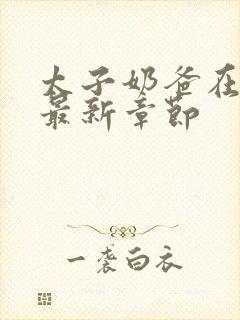 太子奶爸在
最新章节
一袭白衣